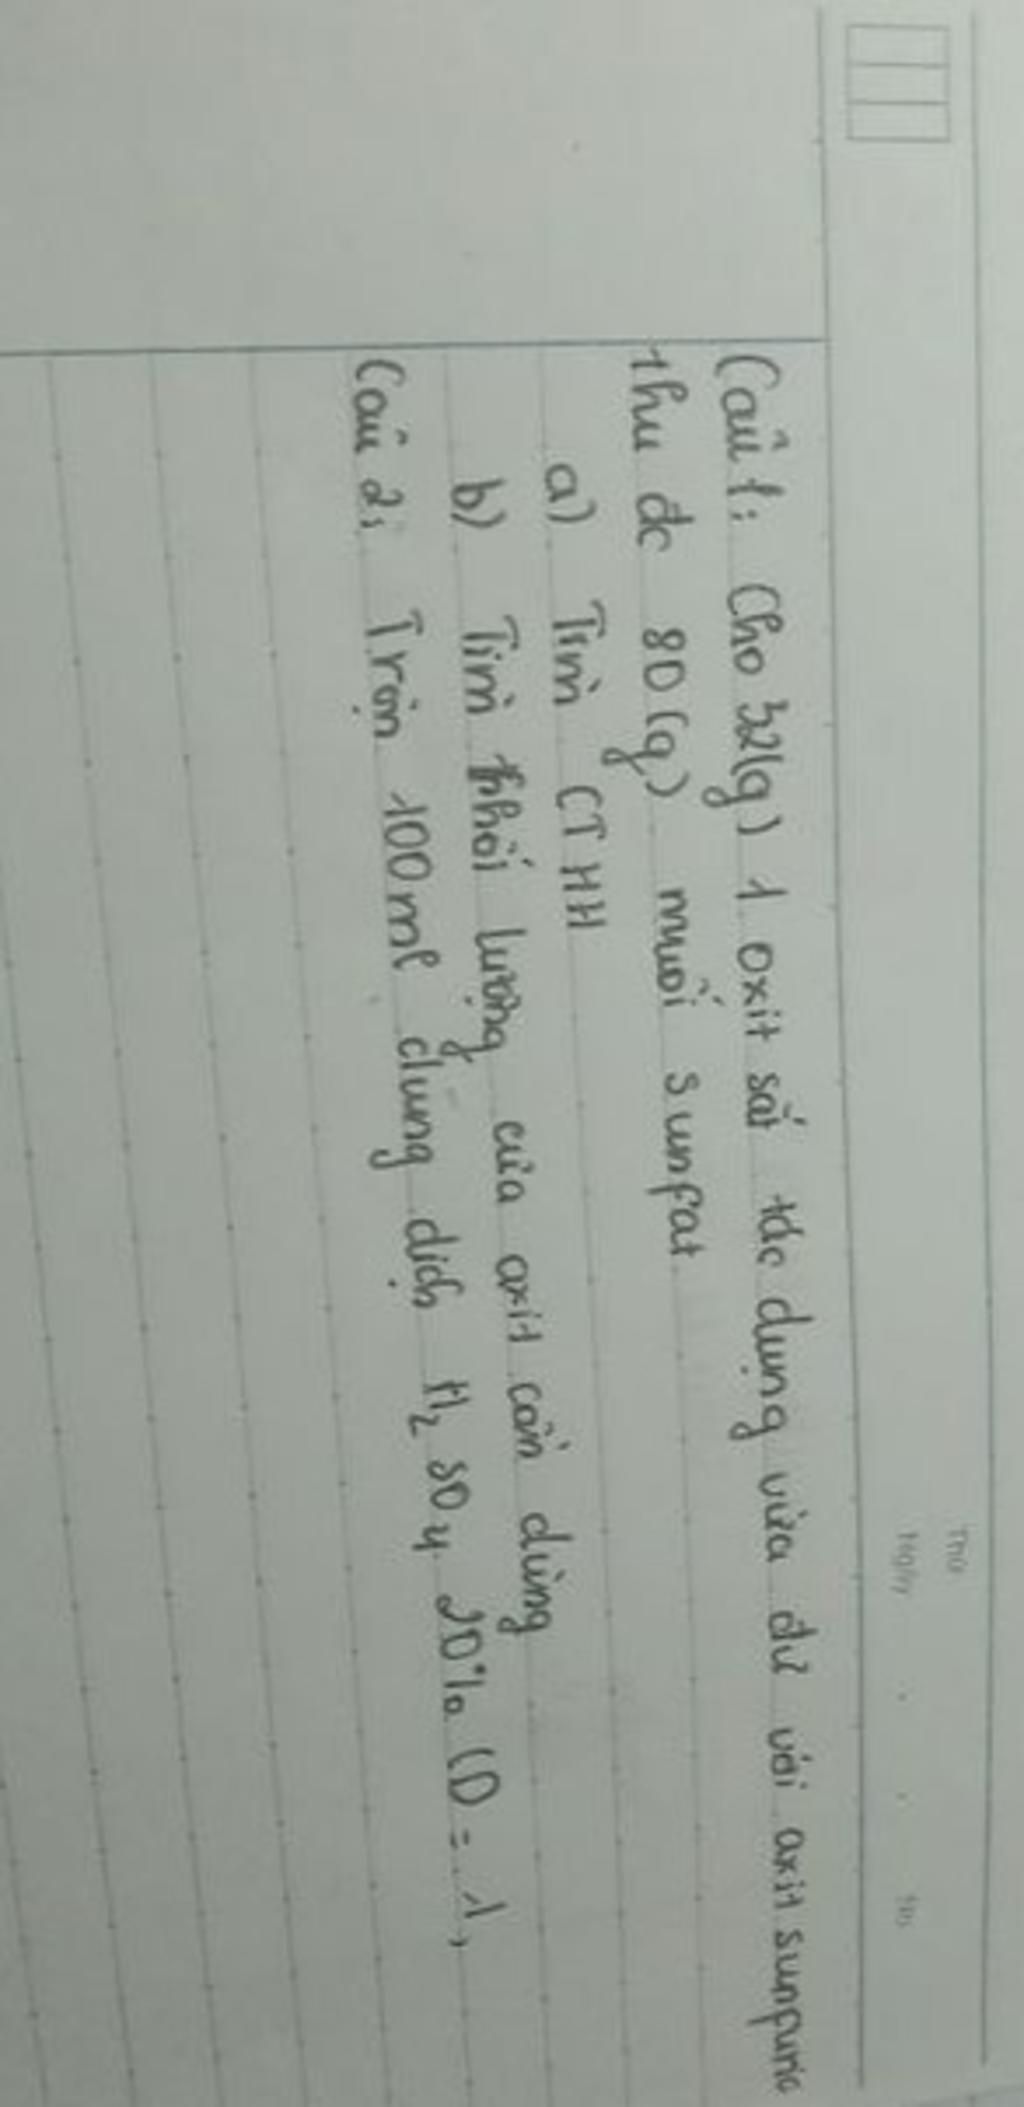 Thứ
Ngày . . No.
Câu 1: Cho 32(g) 1 oxit sắt tác dụng vừa đủ với axit sunfuric
thu đc 80(g) muối sunfat
a) Tìm CTHH
b) Tìm khối lượng của axit cần dùng
Câu 2: Trộn 100ml dung dịch H₂SO₄ 20% (D = 1,